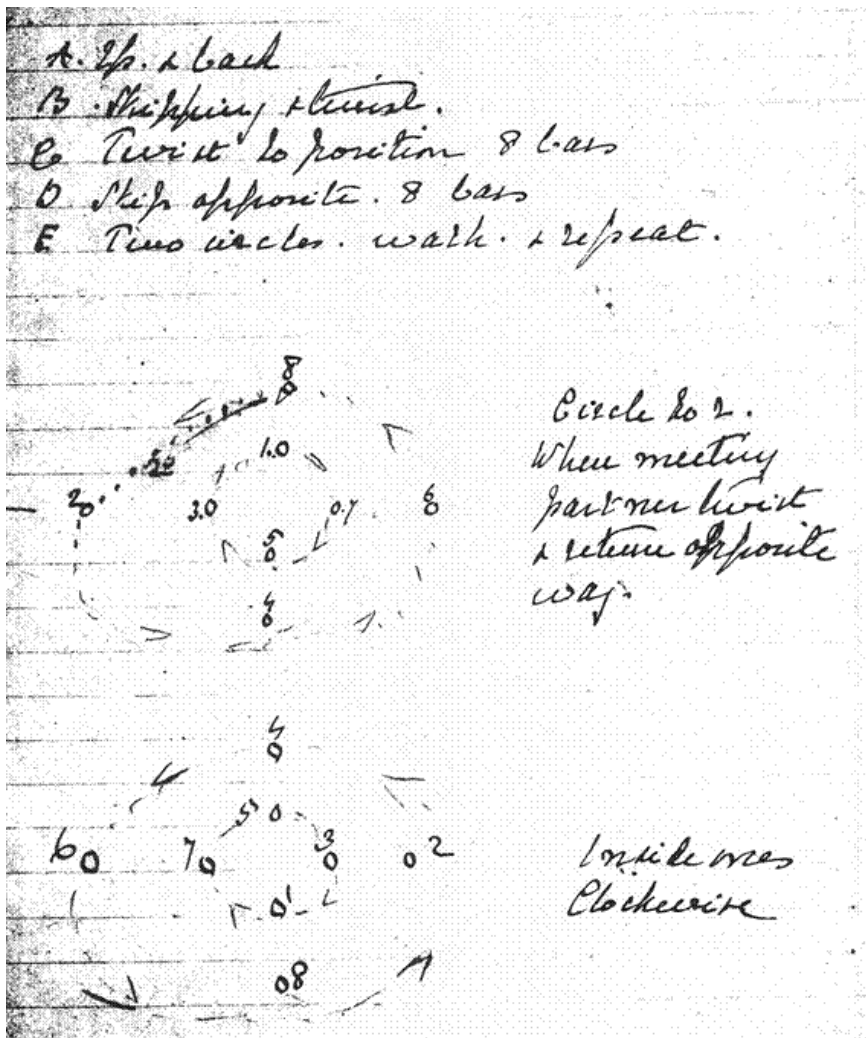 A. Up. & back
B. Skipping & twist.
C Twist to position 8 bars
D Skip opposite. 8 bars
E Two circles. walk. & repeat.
8
1.0
2
3.0
0.7
6
5
4
Circle to 2.
When meeting
partner twist
& return opposite
way.
4
5
6
7
3
2
1
8
Inside ones
Clockwise